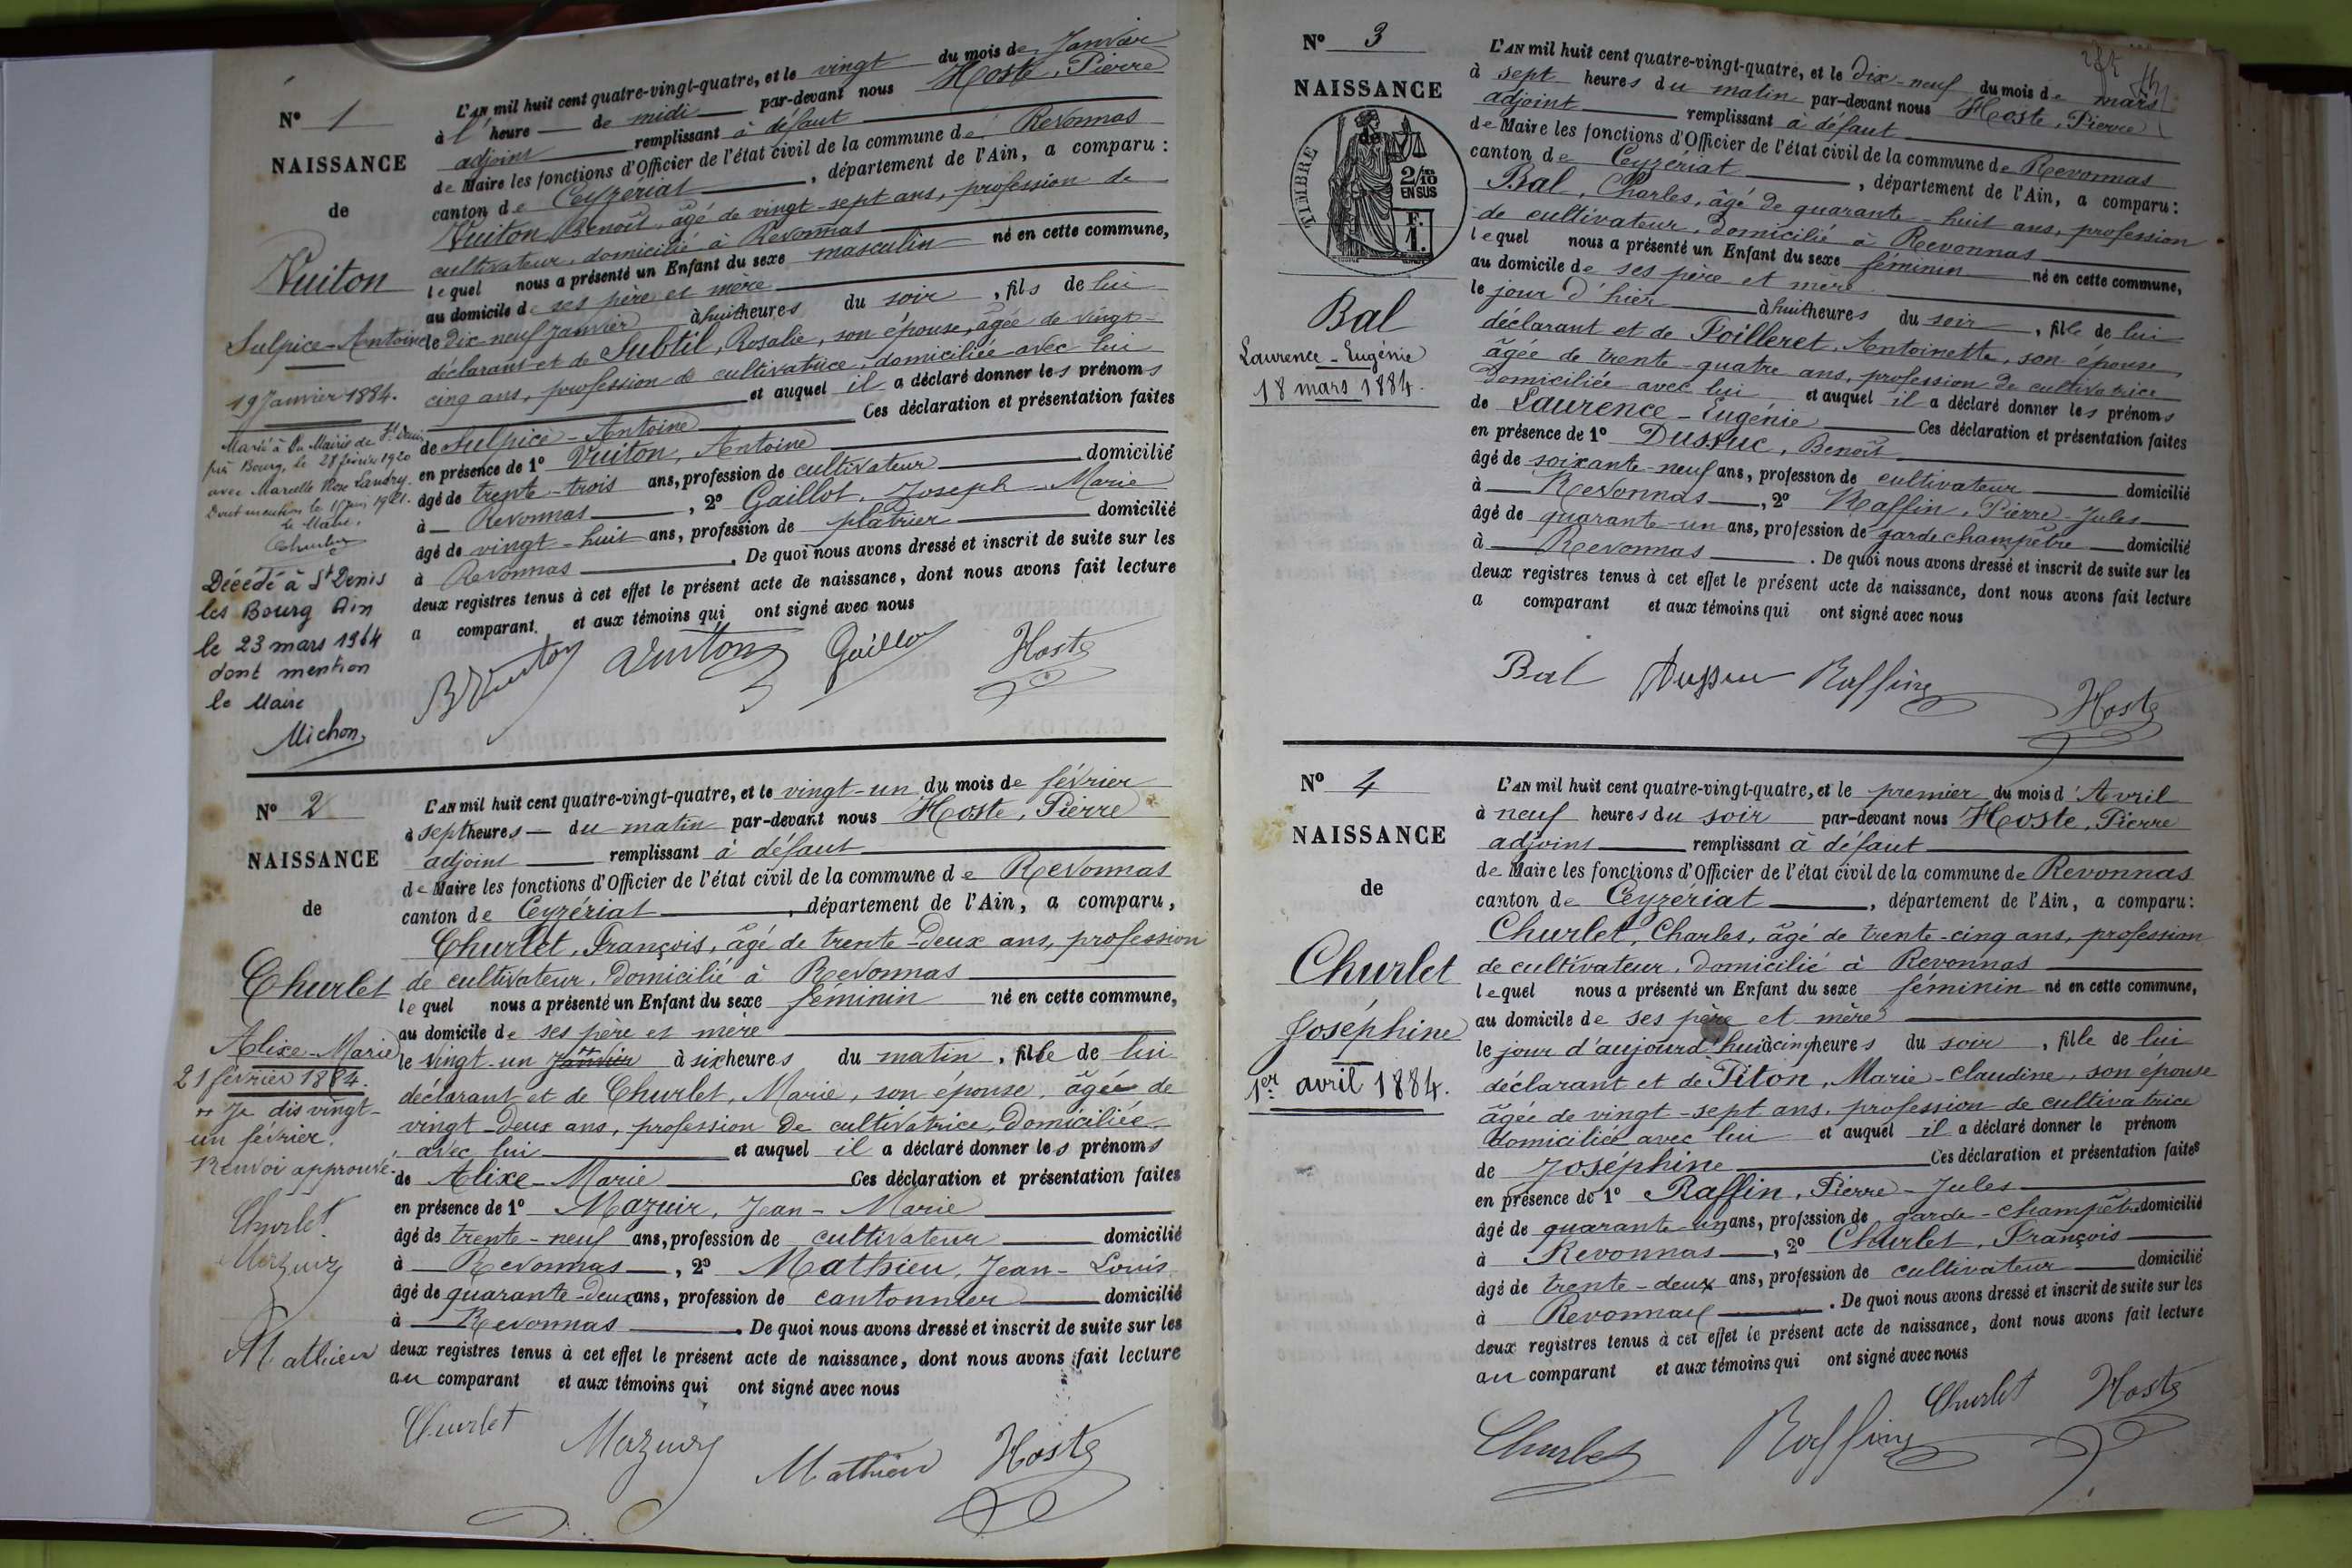 N° 1
NAISSANCE
de
Vuiton
Sulpice-Antoine
19 Janvier 1884.
Marié à la Mairie de St Denis
près Bourg, le 28 février 1920
avec Marcelle Rose Landry.
Dont mention le 1921.
le Maire.
Décédé à St Denis
les Bourg Ain
le 23 mars 1964
dont mention
le Maire
Michon
L'AN mil huit cent quatre-vingt-quatre, et le vingt du mois de Janvier
à l' heure de midi par-devant nous Hoste, Pierre
adjoint remplissant à défaut
de Maire les fonctions d'Officier de l'état civil de la commune de Revonnas
canton de Ceyzériat, département de l'Ain, a comparu :
Vuiton Benoît, âgé de vingt-sept ans, profession de
cultivateur, domicilié à Revonnas
lequel nous a présenté un Enfant du sexe masculin né en cette commune,
au domicile de ses père et mère
le Dix-neuf janvier à huit heures du soir, fils de lui
déclarant et de Subtil, Rosalie, son épouse, âgée de vingt-
cinq ans, profession de cultivatrice, domiciliée avec lui
et auquel il a déclaré donner les prénoms
de Sulpice-Antoine Ces déclaration et présentation faites
en présence de 1° Vuiton, Antoine
âgé de trente-trois ans, profession de cultivateur domicilié
à Revonnas, 2° Gaillot, Joseph-Marie
âgé de vingt-huit ans, profession de plâtrier domicilié
à Revonnas. De quoi nous avons dressé et inscrit de suite sur les
deux registres tenus à cet effet le présent acte de naissance, dont nous avons fait lecture
a comparant et aux témoins qui ont signé avec nous
B Vuiton Vuiton Gaillot Hoste
N° 2
NAISSANCE
de
Churlet
Alixe-Marie
21 février 1884.
Je dis vingt-
un février.
Renvoi approuvé.
Churlet
Mazuir
Mathieu
L'AN mil huit cent quatre-vingt-quatre, et le vingt-un du mois de février
à sept heures du matin par-devant nous Hoste, Pierre
adjoint remplissant à défaut
de Maire les fonctions d'Officier de l'état civil de la commune de Revonnas
canton de Ceyzériat, département de l'Ain, a comparu,
Churlet, François, âgé de trente-deux ans, profession
de cultivateur, domicilié à Revonnas
lequel nous a présenté un Enfant du sexe féminin né en cette commune,
au domicile de ses père et mère
le vingt-un janvier à six heures du matin, fille de lui
déclarant et de Churlet, Marie, son épouse, âgée de
vingt-deux ans, profession de cultivatrice, domiciliée
avec lui et auquel il a déclaré donner les prénoms
de Alixe-Marie Ces déclaration et présentation faites
en présence de 1° Mazuir, Jean-Marie
âgé de trente-neuf ans, profession de cultivateur domicilié
à Revonnas, 2° Mathieu, Jean-Louis
âgé de quarante-deux ans, profession de cantonnier domicilié
à Revonnas. De quoi nous avons dressé et inscrit de suite sur les
deux registres tenus à cet effet le présent acte de naissance, dont nous avons fait lecture
au comparant et aux témoins qui ont signé avec nous
Churlet Mazuir Mathieu Hoste
N° 3
NAISSANCE
de
TIMBRE
2/10
EN SUS
F.
1.
Bal
Laurence-Eugénie
18 mars 1884.
L'AN mil huit cent quatre-vingt-quatre, et le dix-neuf du mois de mars
à sept heures du matin par-devant nous Hoste, Pierre
adjoint remplissant à défaut
de Maire les fonctions d'Officier de l'état civil de la commune de Revonnas
canton de Ceyzériat, département de l'Ain, a comparu :
Bal, Charles, âgé de quarante-huit ans, profession
de cultivateur, domicilié à Revonnas
lequel nous a présenté un Enfant du sexe féminin né en cette commune,
au domicile de ses père et mère
le jour d'hier à huit heures du soir, fille de lui
déclarant et de Poilleret, Antoinette, son épouse
âgée de trente-quatre ans, profession de cultivatrice
domiciliée avec lui et auquel il a déclaré donner les prénoms
de Laurence-Eugénie Ces déclaration et présentation faites
en présence de 1° Dussuc, Benoît
âgé de soixante-neuf ans, profession de cultivateur domicilié
à Revonnas, 2° Raffin, Pierre-Jules
âgé de quarante-un ans, profession de garde champêtre domicilié
à Revonnas. De quoi nous avons dressé et inscrit de suite sur les
deux registres tenus à cet effet le présent acte de naissance, dont nous avons fait lecture
a comparant et aux témoins qui ont signé avec nous
Bal Dussuc Raffin Hoste
N° 4
NAISSANCE
de
Churlet
Joséphine
1er avril 1884.
L'AN mil huit cent quatre-vingt-quatre, et le premier du mois d'Avril
à neuf heures du soir par-devant nous Hoste, Pierre
adjoint remplissant à défaut
de Maire les fonctions d'Officier de l'état civil de la commune de Revonnas
canton de Ceyzériat, département de l'Ain, a comparu :
Churlet, Charles, âgé de trente-cinq ans, profession
de cultivateur, domicilié à Revonnas
lequel nous a présenté un Enfant du sexe féminin né en cette commune,
au domicile de ses père et mère
le jour d'aujourd'hui à cinq heures du soir, fille de lui
déclarant et de Piton, Marie-Claudine, son épouse
âgée de vingt-sept ans, profession de cultivatrice
domiciliée avec lui et auquel il a déclaré donner le prénom
de Joséphine Ces déclaration et présentation faites
en présence de 1° Raffin, Pierre-Jules
âgé de quarante-un ans, profession de garde-champêtre domicilié
à Revonnas, 2° Churlet, François
âgé de trente-deux ans, profession de cultivateur domicilié
à Revonnas. De quoi nous avons dressé et inscrit de suite sur les
deux registres tenus à cet effet le présent acte de naissance, dont nous avons fait lecture
au comparant et aux témoins qui ont signé avec nous
Churlet Raffin Churlet Hoste